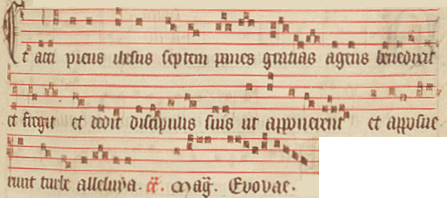 Et acci piens ihesus septem panes gratias agens benedixit
et fregit et dedit discipulis suis ut apponerent et apposue
runt turbe alleluya. Mag. Evovae.